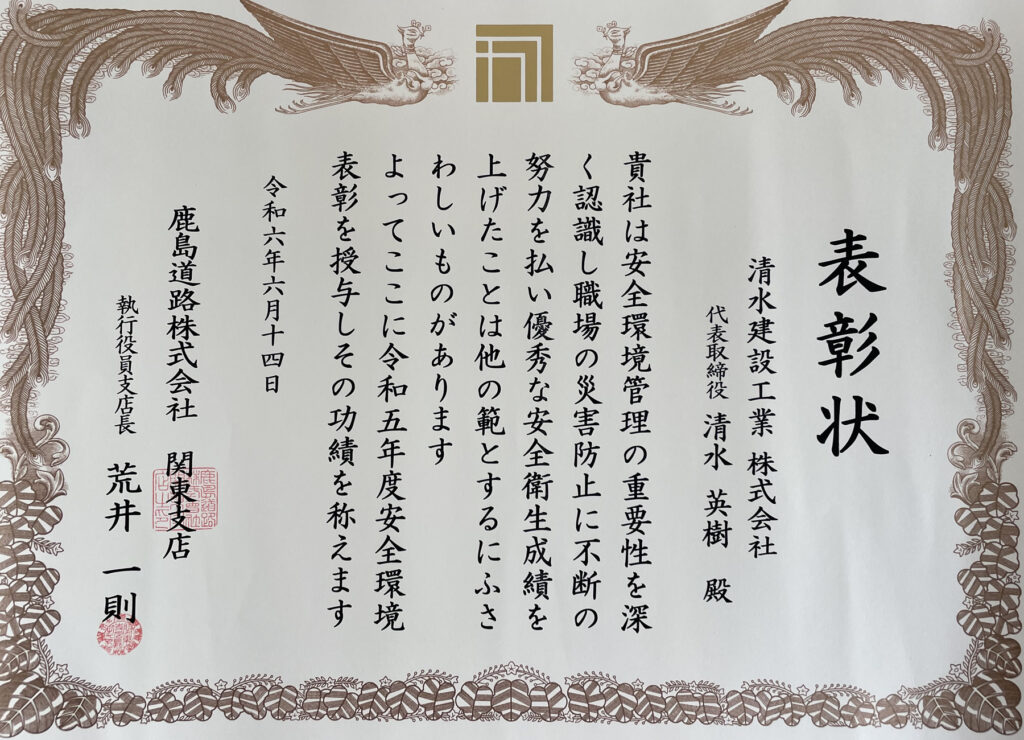 表彰状
清水建設工業 株式会社
代表取締役 清水 英樹 殿
貴社は安全環境管理の重要性を深
く認識し職場の災害防止に不断の
努力を払い優秀な安全衛生成績を
上げたことは他の範とするにふさ
わしいものがあります
よってここに令和五年度安全環境
表彰を授与しその功績を称えます
令和六年六月十四日
鹿島道路株式会社 関東支店
執行役員支店長 荒井 一則